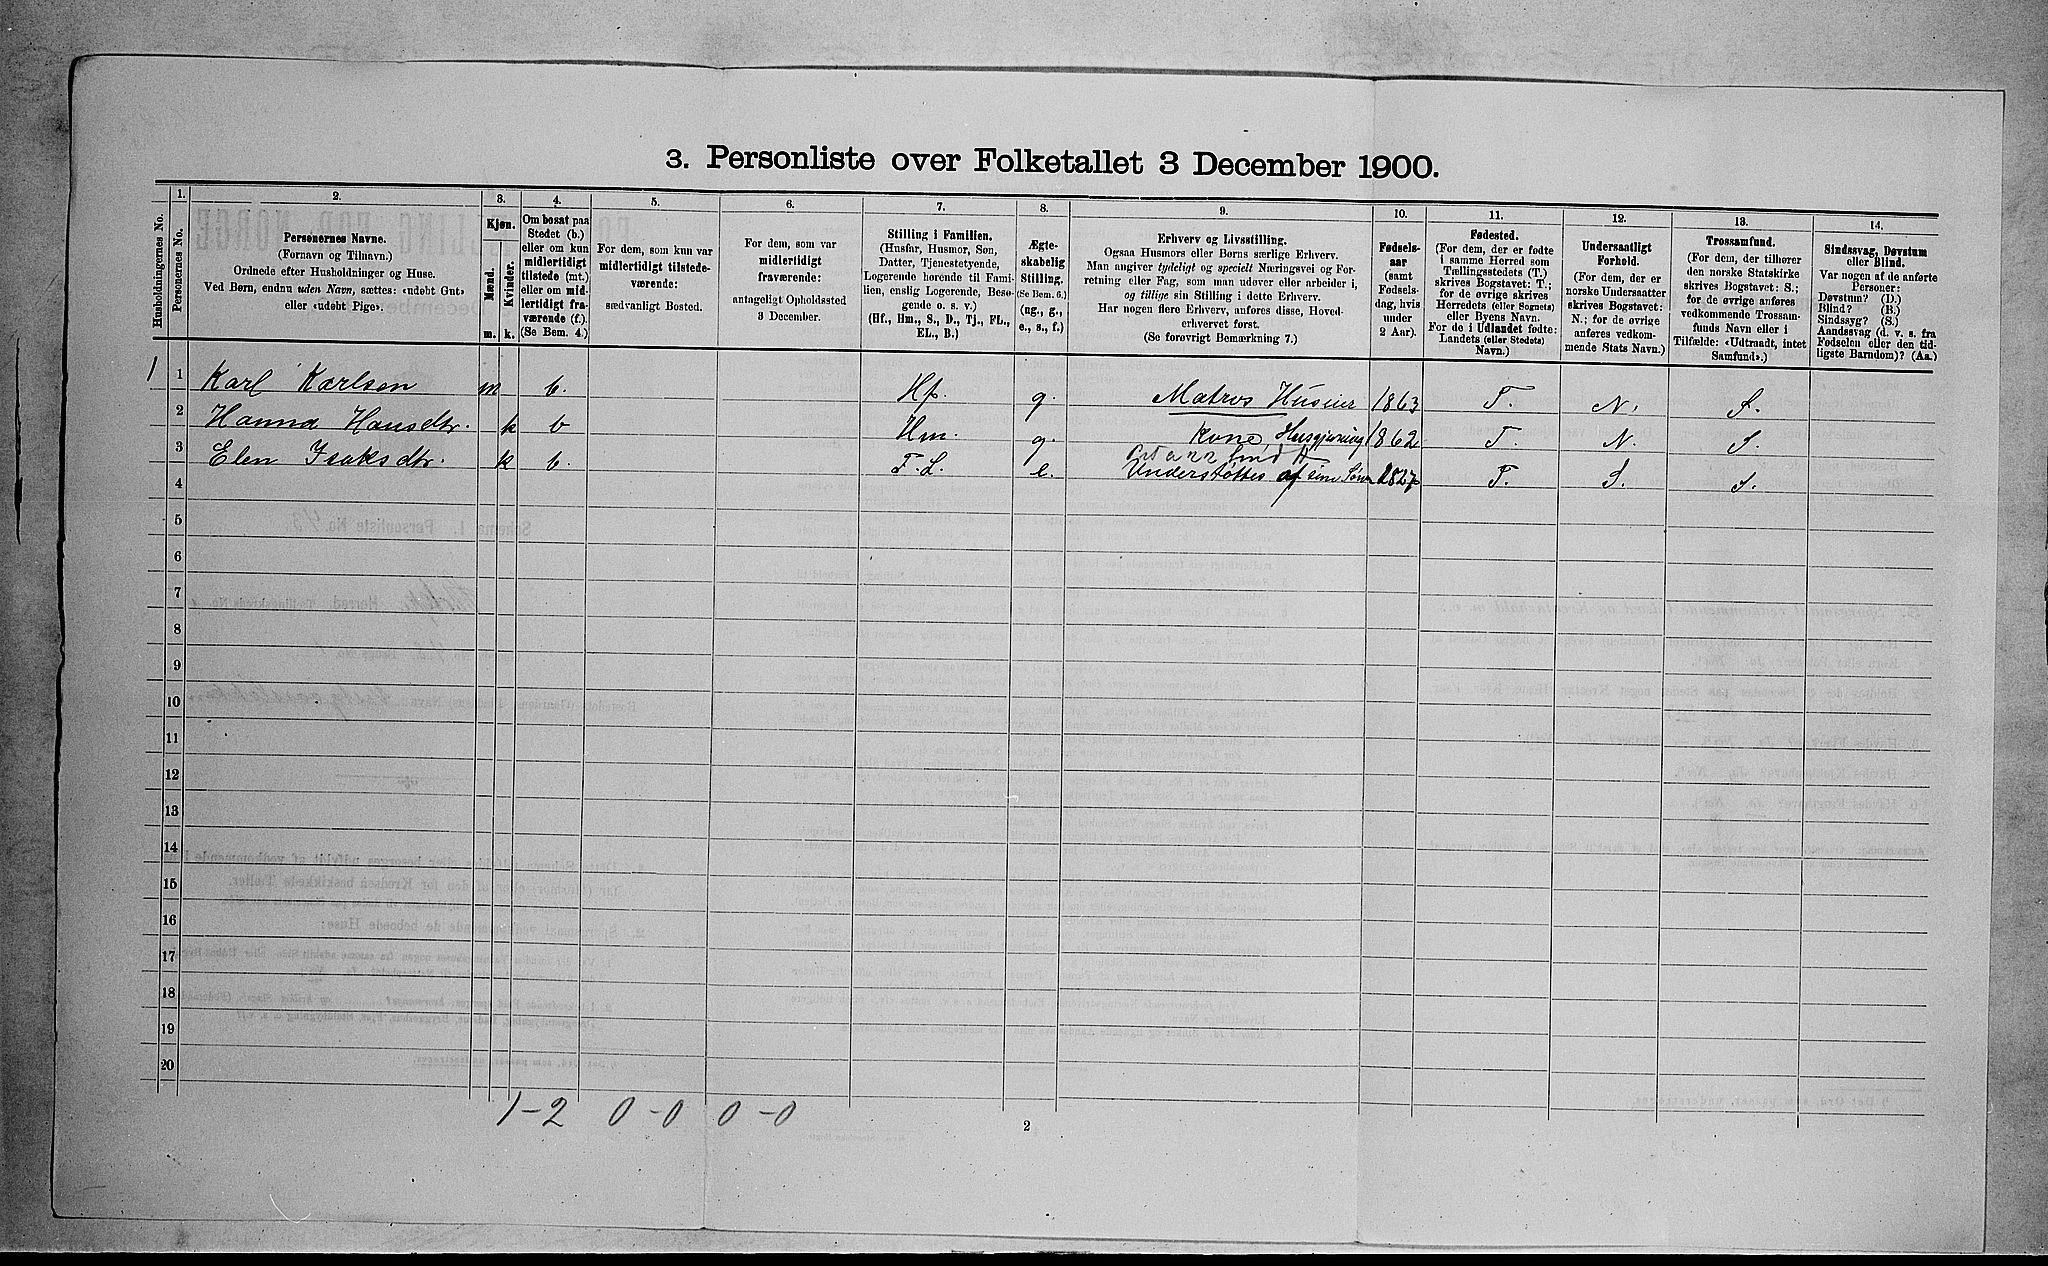 3. Personliste over Folketallet 3 December 1900.
Husholdningernes No.
1.
Personernes No.
2.
Personernes Navne.
(Fornavn og Tilnavn.)
Ordnede efter Husholdninger og Huse.
Ved Børn, endnu uden Navn, sættes: «udøbt Gut»
eller «udøbt Pige».
3.
Kjøn.
Mænd.
Kvinder.
m. k.
4.
Om bosat paa
Stedet (b.)
eller om kun
midlertidigt
tilstede (mt.)
eller om mid-
lertidigt fra-
værende (f.).
(Se Bem. 4.)
5.
For dem, som kun var
midlertidigt tilstede-
værende:
sædvanligt Bosted.
6.
For dem, som var
midlertidigt
fraværende:
antageligt Opholdssted
3 December.
7.
Stilling i Familien.
(Husfar, Husmor, Søn,
Datter, Tjenestetyende,
Logerende hørende til Fami-
lien, enslig Logerende, Besø-
gende o. s. v.)
(Hf., Hm., S., D., Tj., FL.,
EL., B.)
8.
Ægte-
skabelig
Stilling.
(Se Bem. 6.)
(ug., g.,
e., s., f.)
9.
Erhverv og Livsstilling.
Ogsaa Husmors eller Børns særlige Erhverv.
Man angiver tydeligt og specielt Næringsvei og For-
retning eller Fag, som man udøver eller arbeider i,
og tillige sin Stilling i dette Erhverv.
Har nogen flere Erhverv, anføres disse, Hoved-
erhvervet først.
(Se forøvrigt Bemærkning 7.)
10.
Fødsels-
aar
(samt
Fødsels-
dag, hvis
under
2 Aar).
11.
Fødested.
(For dem, der er fødte
i samme Herred som
Tællingsstedets (T.)
skrives Bogstavet: T.;
for de øvrige skrives
Herredets (eller Sognets)
eller Byens Navn.
For de i Udlandet fødte:
Landets (eller Stedets)
Navn.)
12.
Undersaatligt
Forhold.
(For dem, der er
norske Undersaatter
skrives Bogstavet:
N.; for de øvrige
anføres vedkom-
mende Stats Navn.)
13.
Trossamfund.
(For dem, der tilhører
den norske Statskirke
skrives Bogstavet: S.;
for de øvrige anføres
vedkommende Trossam-
funds Navn eller i
Tilfælde: «Udtraadt, intet
Samfund».)
14.
Sindssvag, Døvstum
eller Blind.
Var nogen af de anførte
Personer:
Døvstum? (D.)
Blind? (B.)
Sindssyg? (S.)
Aandssvag (d. v. s. fra
Fødselen eller den tid-
ligste Barndom)? (Aa.)
1 1 Karl Karlsen m b. Hf. g. Matros Huseier 1863 T. N. S.
2 Hanna Hansdtr. k b Hm. g. Kone, Husgjerning 1862 T. N. S.
3 Elen Isaksdtr. k b. F. L. e. Understøttes af sine Sønn 1827 T. S. S.
4
5
6
7
8
9
10
11
12
13
14
15
16
17
18
19
20
1-2 0-0 0-0
2